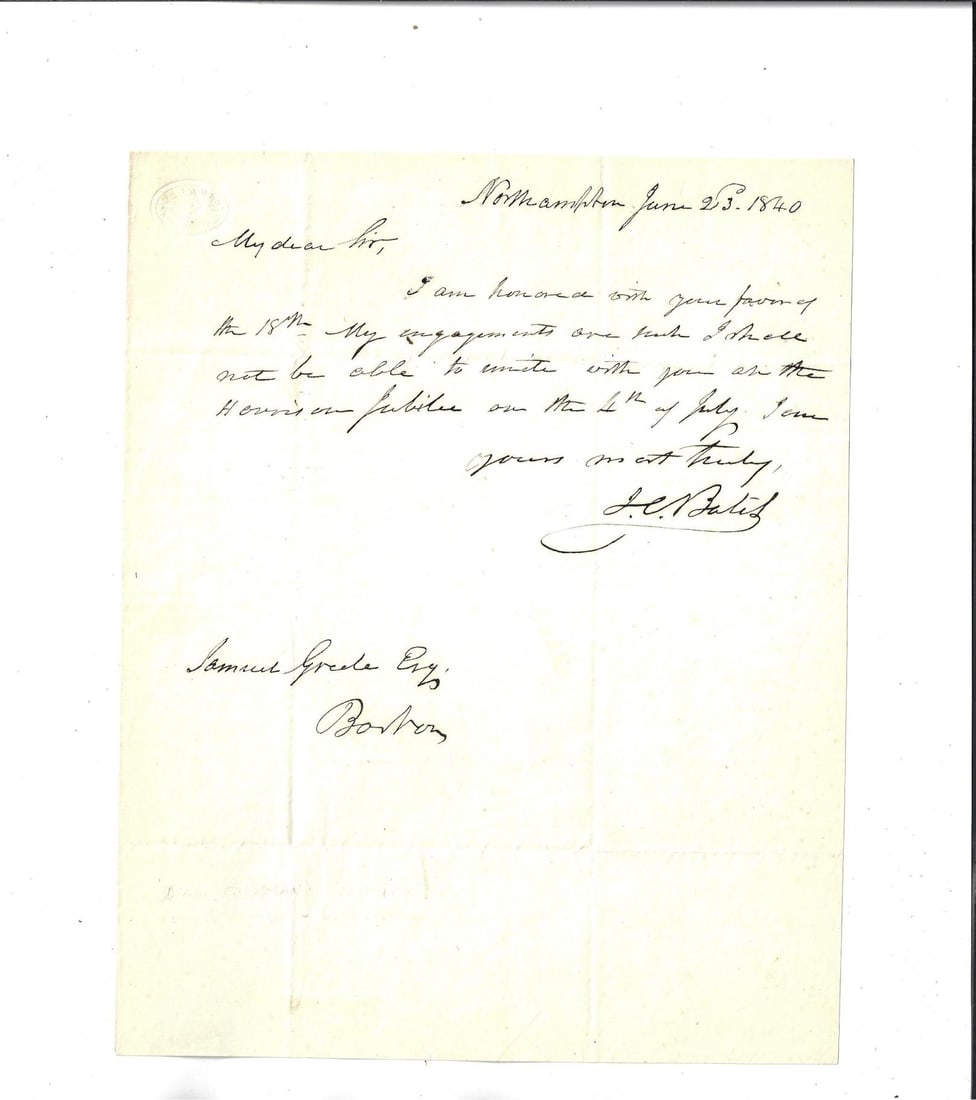 Northampton June 23d. 1840
My dear Sir,
I am honored with your favor of
the 18th My engagements are such I shall
not be able to unite with you at the
Harrison Jubilee on the 4th of July I am
yours most truly,
I. C. Bates
Samuel Greele Esq.
Boston